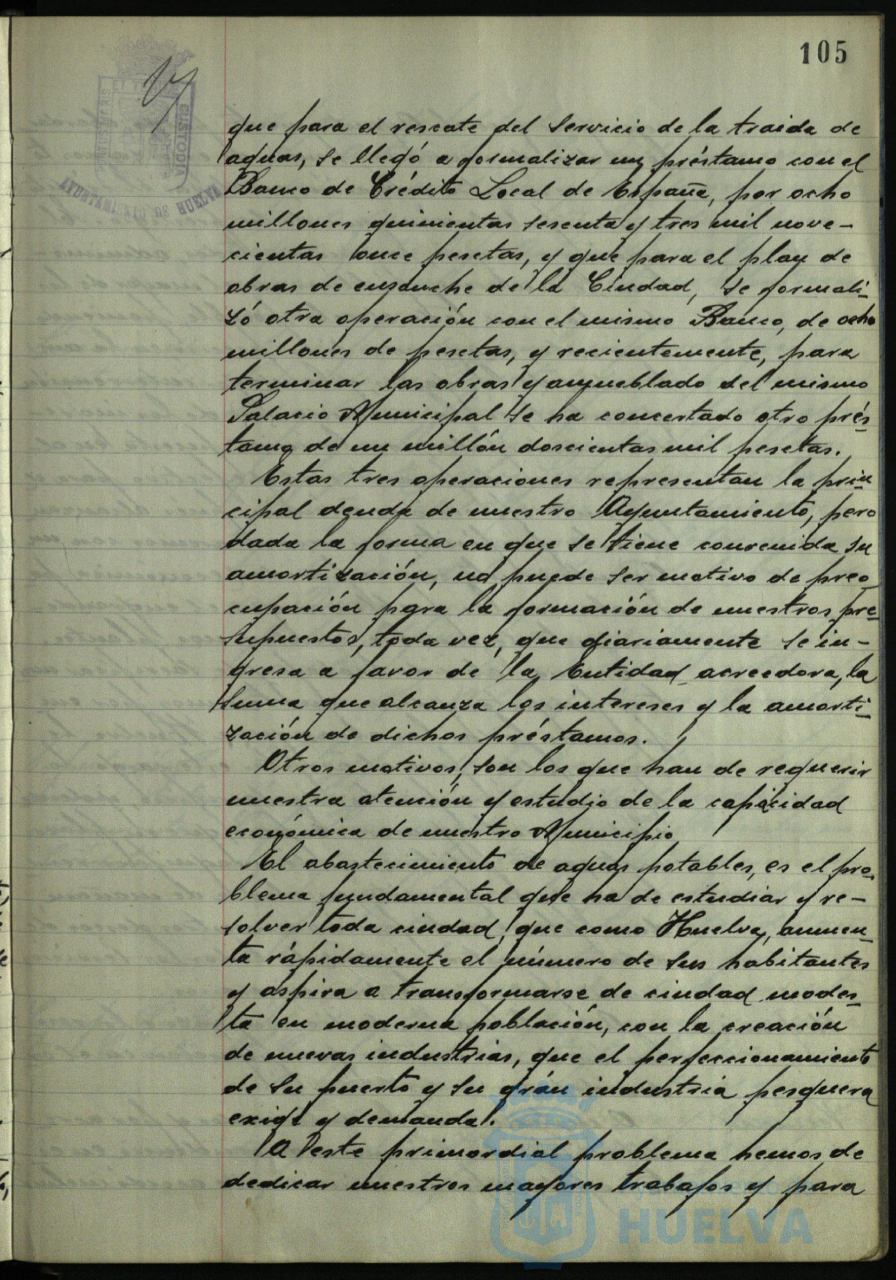 105
que para el rescate del servicio de la traida de
aguas, se llegó a formalizar un préstamo con el
Banco de Crédito Local de España, por ocho
millones quinientas sesenta y tres mil nove-
cientas once pesetas, y que para el plan de
obras de ensanche de la Ciudad, se formali-
zó otra operación con el mismo Banco, de ocho
millones de pesetas, y recientemente, para
terminar las obras y amueblado del mismo
Palacio Municipal se ha concertado otro prés-
tamo de un millón doscientas mil pesetas.
Estas tres operaciones representan la prin
cipal deuda de nuestro Ayuntamiento, pero
dada la forma en que se tiene convenida su
amortización, no puede ser motivo de preo
cupación para la formación de nuestros pre-
supuestos, toda vez, que diariamente se in-
gresa a favor de la Entidad acreedora, la
suma que alcanza los intereses y la amorti-
zación de dichos préstamos.
Otros motivos, son los que han de requerir
nuestra atención y estudio de la capacidad
económica de nuestro Municipio
El abastecimiento de aguas potables, es el pro-
blema fundamental que ha de estudiar y re-
solver toda ciudad, que como Huelva, aumen-
ta rápidamente el número de sus habitantes
y aspira a transformarse de ciudad modes-
ta en moderna población, con la creación
de nuevas industrias, que el perfeccionamiento
de su puerto y su grán industria pesquera
exige y demanda.
A este primordial problema hemos de
dedicar nuestros mayores trabajos y para
CUSTODIA
AYUNTAMIENTO DE HUELVA
HUELVA